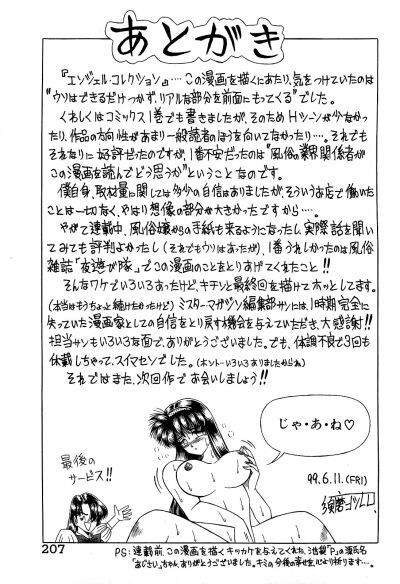 あとがき
『エンジェル・コレクション』…この漫画を描くにあたり、気をつけていたのは
"ウソはできるだけつかず、リアルな部分を前面にもってくる"でした。
くわしくはコミックス1巻でも書きましたが、そのためHシーンが少なかっ
たり、作品の方向性があまり一般読者のほうを向いてなかったり…。それでも
それなりに好評だったのですが、1番不安だったのは"風俗の業界関係者が
この漫画を読んでどう思うか"ということなのです。
僕自身、取材量に関しては多少の自信はありましたが、そういうお店で働いた
ことは一切なく、やはり想像の部分が大きかったですから…。
やがて連載中、風俗嬢からの手紙も来るようになったし、実際話を聞い
てみても評判よかったし(それでもウソはあったが)、1番うれしかったのは風俗
雑誌「夜遊び隊」でこの漫画のことをとりあげてくれたこと!!
そんなワケでいろいろあったけど、キチンと最終回を描けてホッとしてます。
(本当はもうちょっと続けたかったけど)ミスターマガジン編集部サンには、1時期完全に
失っていた漫画家としての自信をとり戻す機会を与えていただき、大感謝!!
担当サンもいろいろな面で、ありがとうございました。でも、体調不良で3回も
休載しちゃって、スイマセンでした。(ホントーいろいろありましたからね)
それではまた、次回作でお会いしましょう!!
じゃ・あ・ね♡
最後の
サービス!!
99.6.11.(FRI)
207
PS:連載前、この漫画を描くキッカケを与えてくれた、池袋「P」の源氏名
"あじさい"ちゃん、ありがとうございました。キミの今後の幸せを、心より祈ります…。